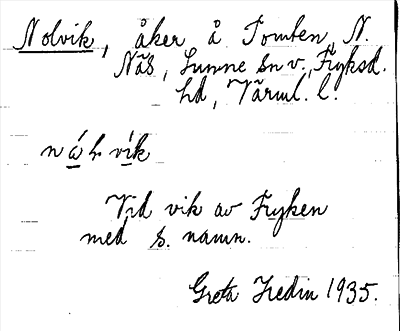 Nolvik, åker å Tomten, N.
Näs, Sunne sn v., Fryksd.
hd, Värml. l.
vík
Vid vik av Fryken
med s. namn.
Greta Hedin 1935.